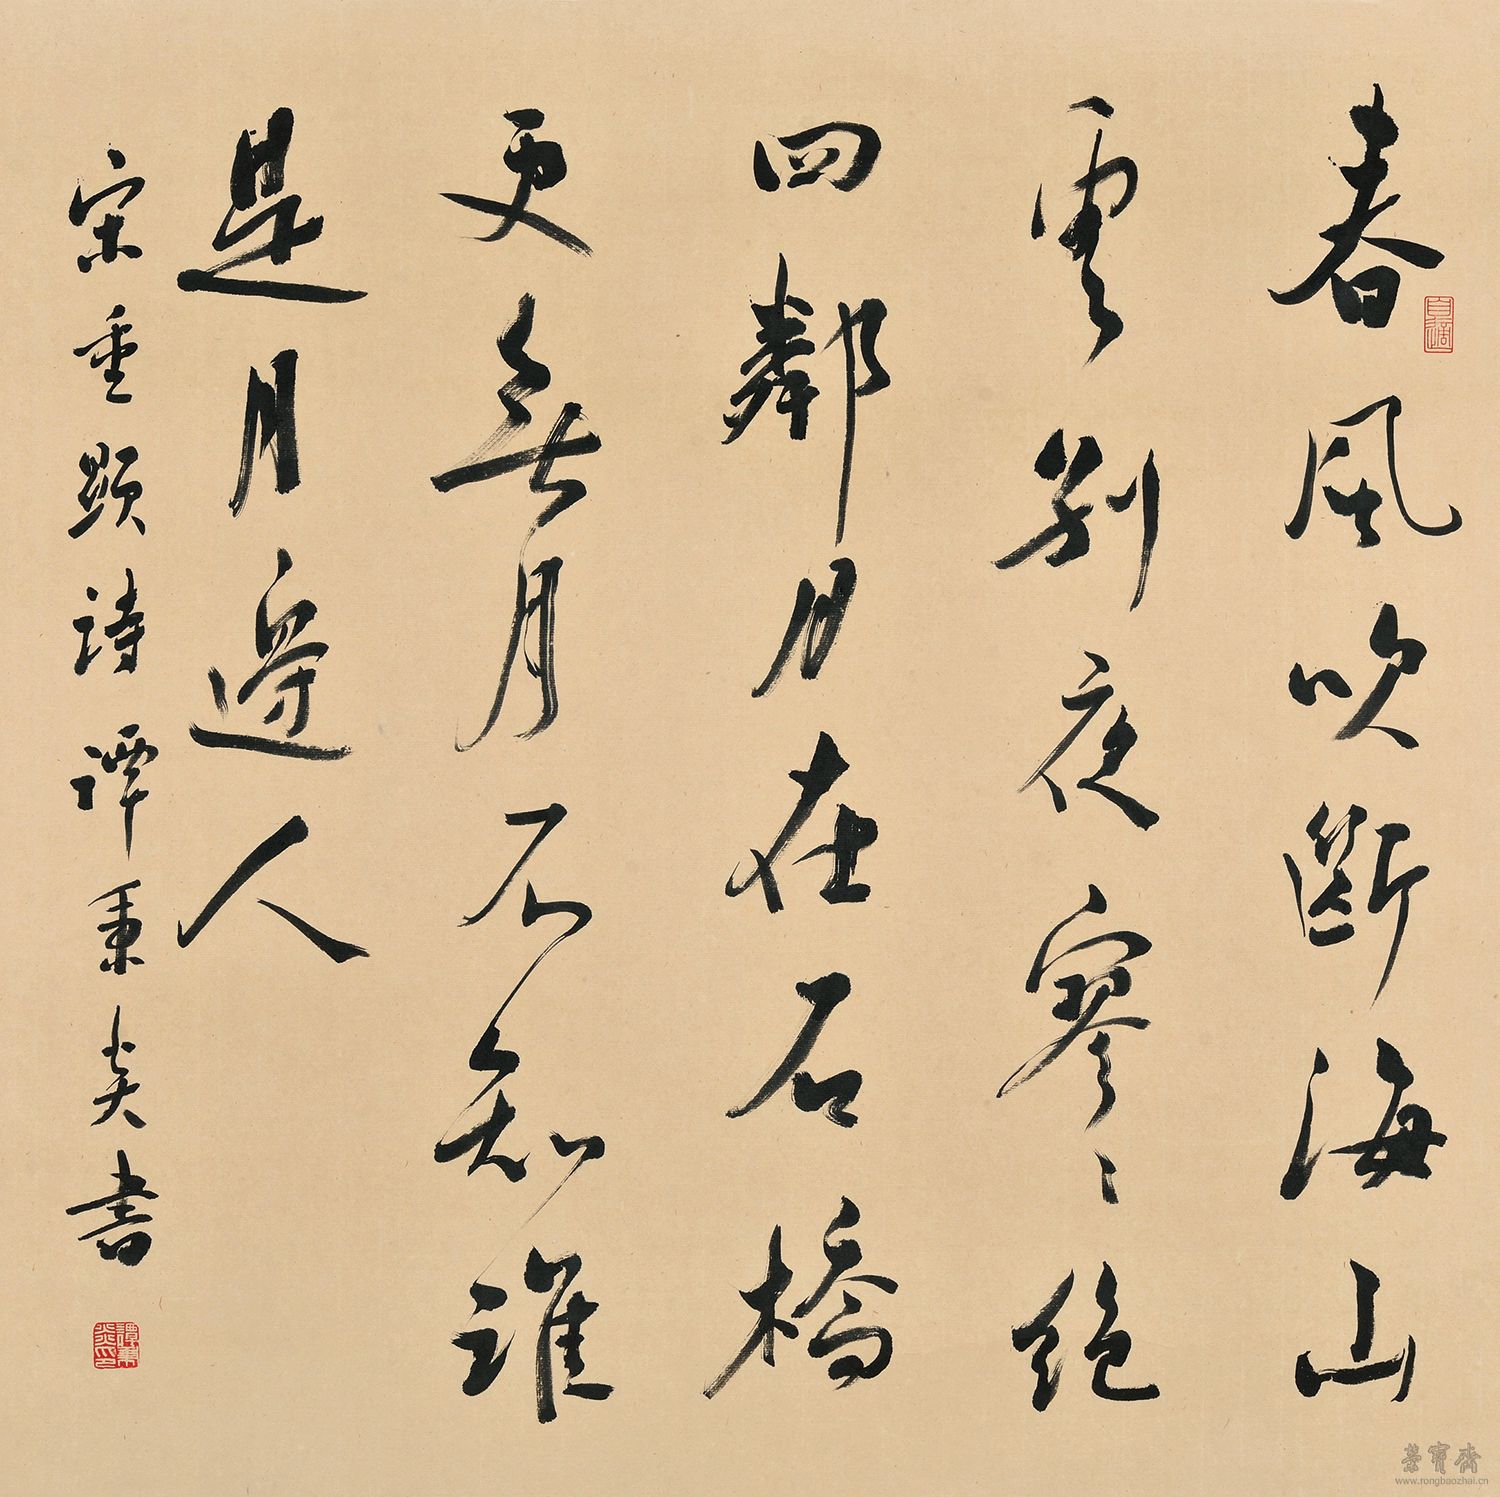 春風吹斷海山
雲別夜寥〻絕
四鄰月在石橋
更無月不知誰
是月邊人
宋重顯詩譚秉炎書
譚秉炎印
榮寶齋
www.rongbaozhai.cn